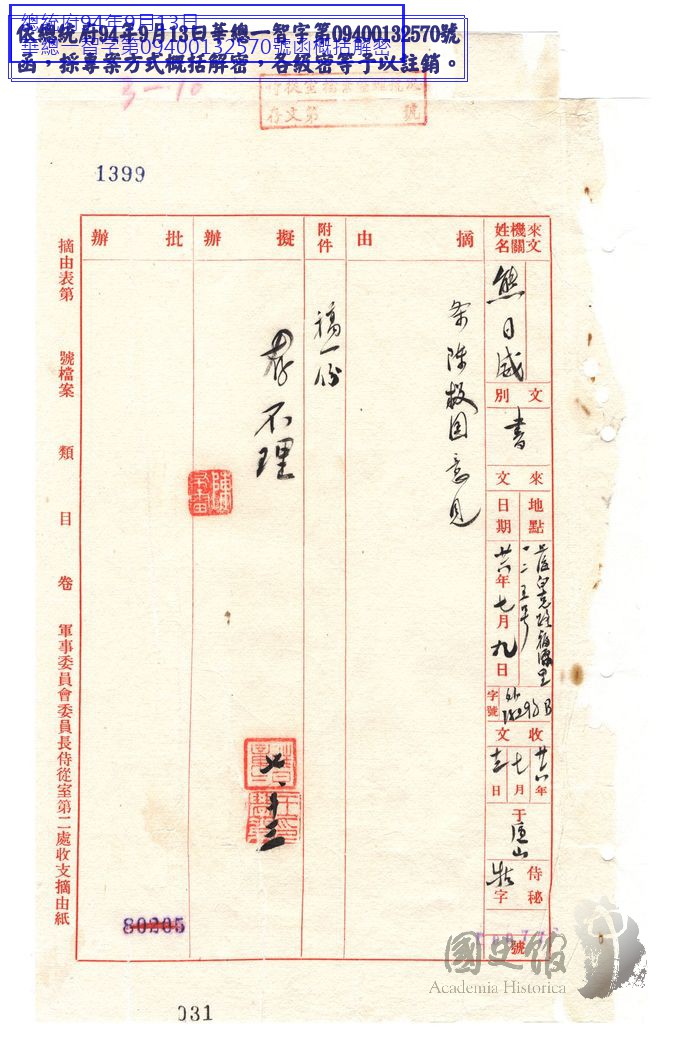 總統府94年9月13日
華總一智字第09400132570號函概括解密
依總統府94年9月13日華總一智字第09400132570號
函，採專案方式概括解密，各級密等予以註銷。
1399
來文機關姓名
熊日威
文別
書
來文
地點
日期
廿六年七月九日
字號
收文
廿六年
七月
日
于
山
侍秘
字
號
摘由
条陳救國意見
附件
稿一份
擬辦
存不理
七、十三
批辦
摘由表第 號檔案 類 目 卷 軍事委員會委員長侍從室第二處收支摘由紙
80205
031
國史館
Academia Historica